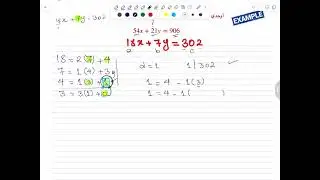 EXAMPLE
54x + 21y = 906
18x + 7y = 302
a b c
18 = 2(7) + 4
7 = 1(4) + 3
4 = 1(3) + 1
3 = 3(1) + 0
d = 1 1 | 302 ✓
1 = 4 - 1(3)
1 = 4 - 1( )